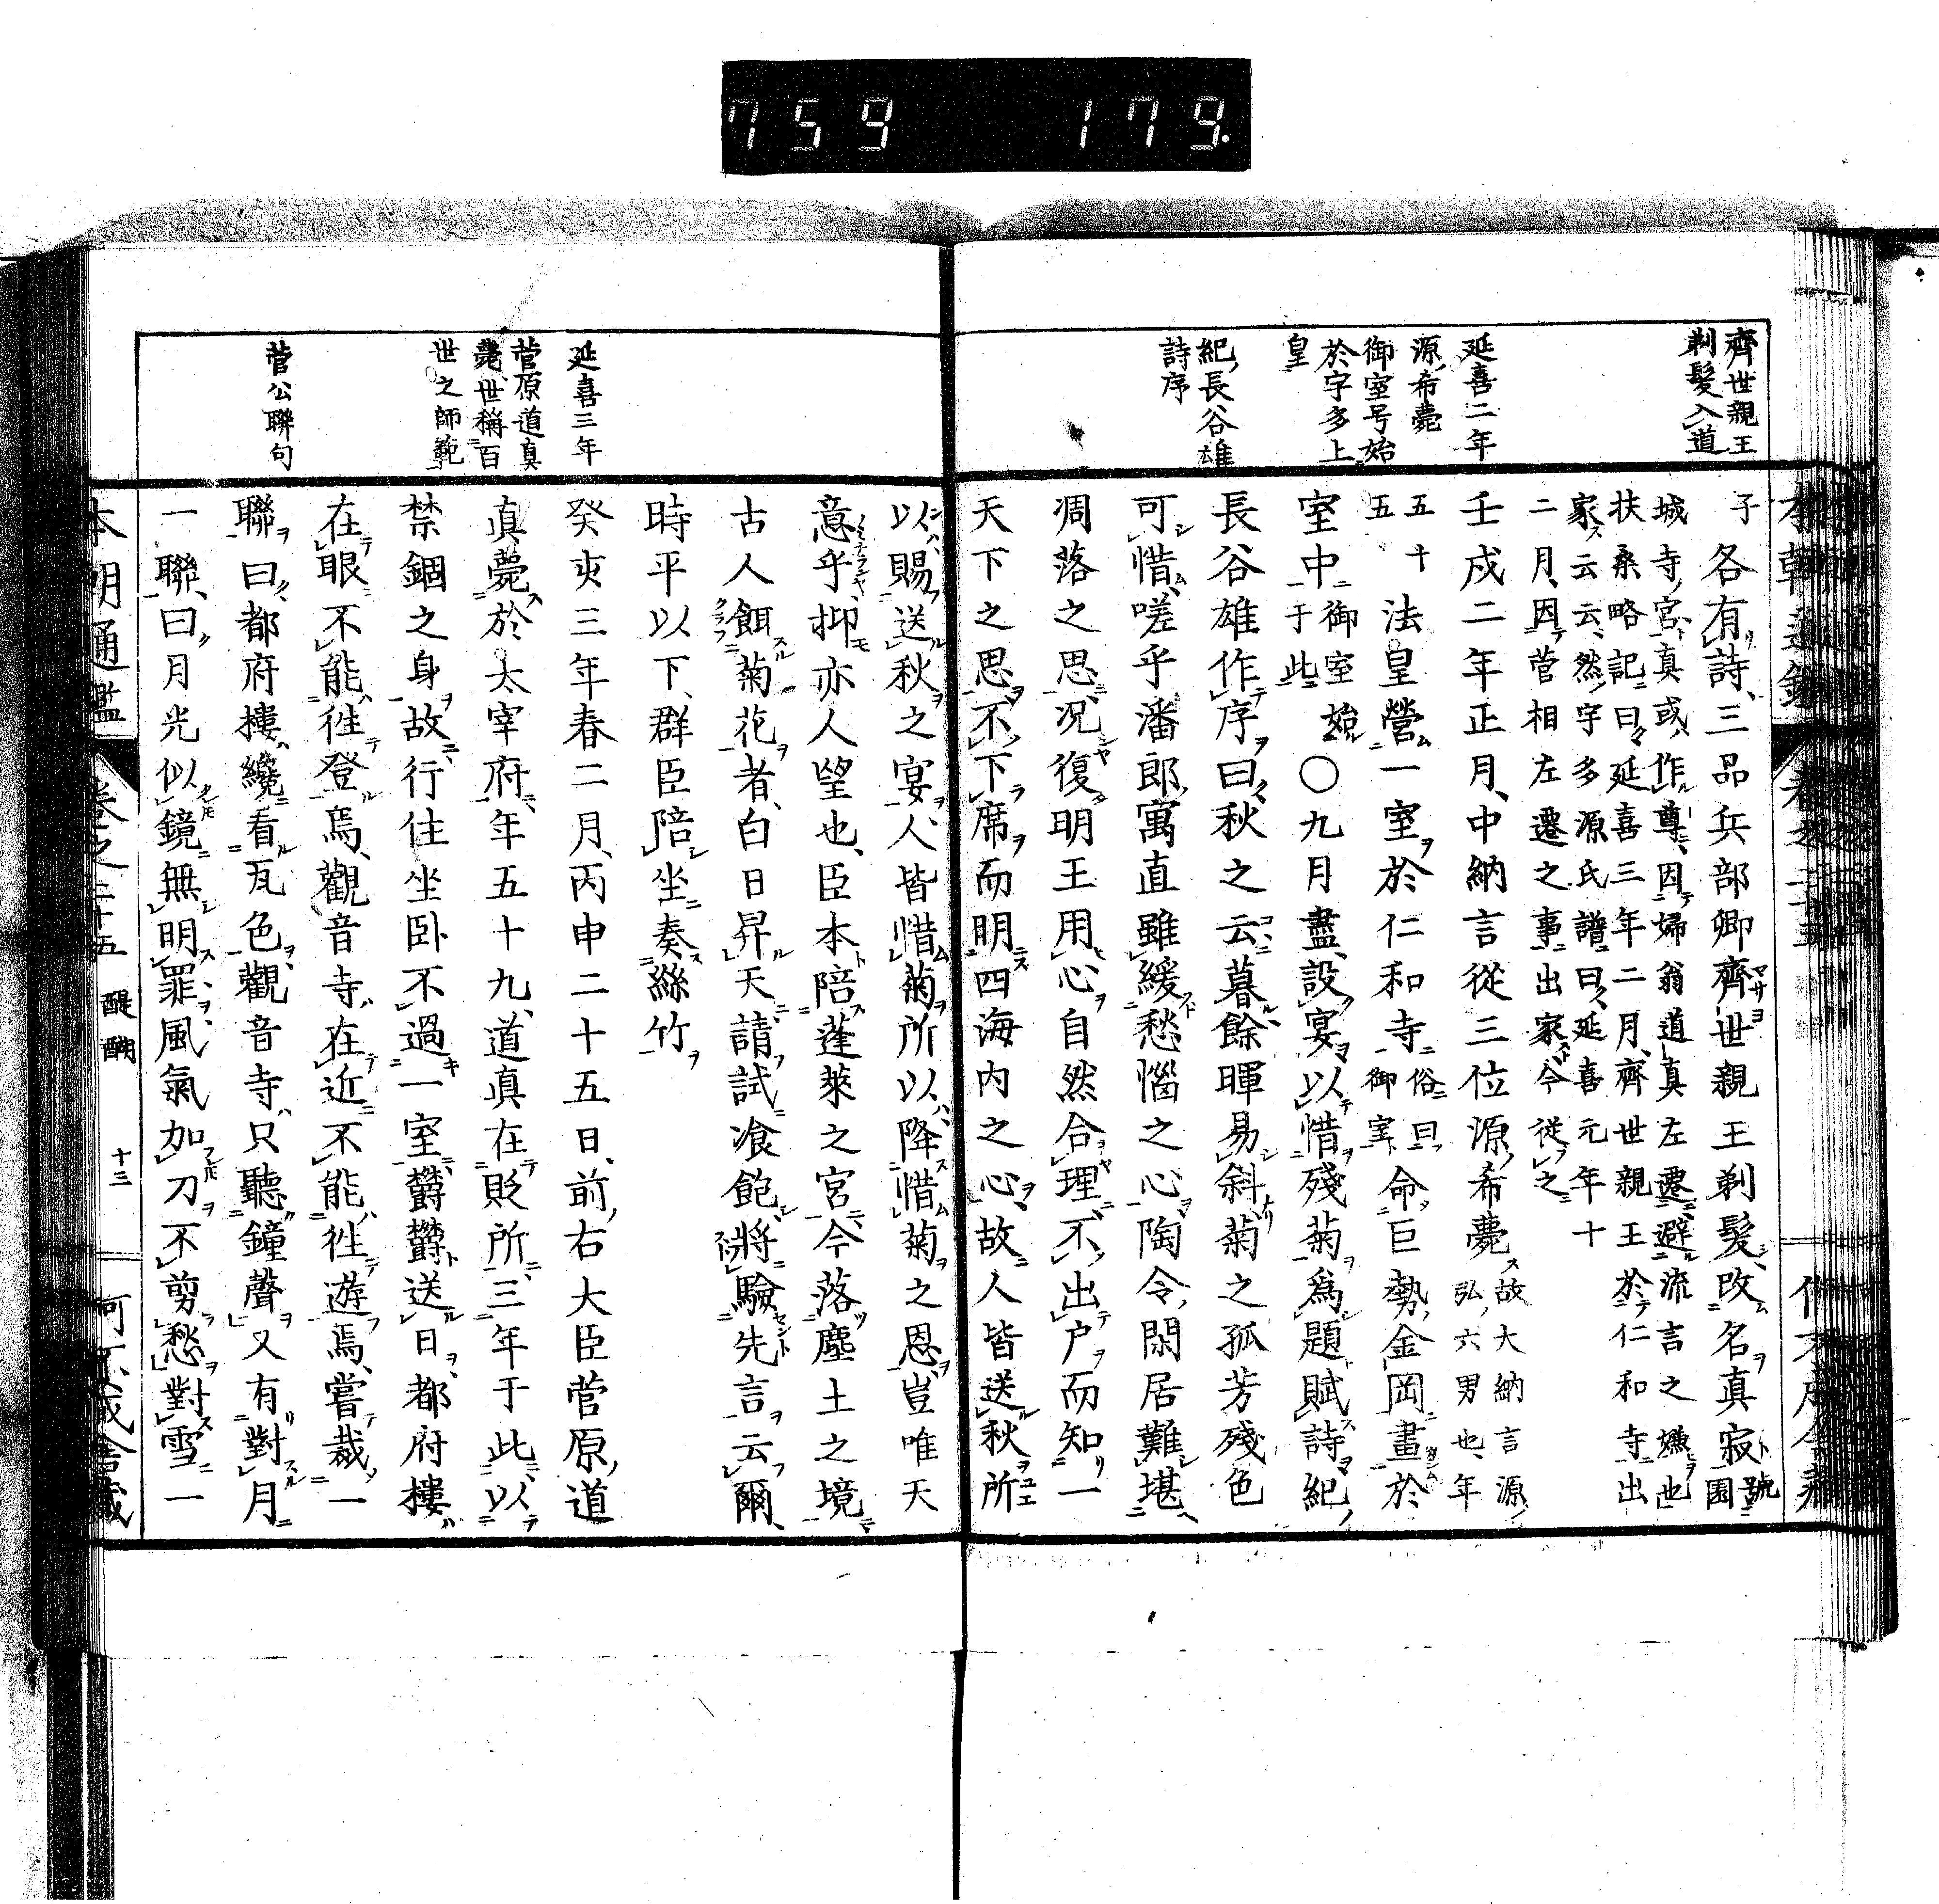 759 179.
齊世親王
剃髮入道
延喜二年
源希薨
御室号始
於宇多上
皇
紀長谷雄
詩序
子各有詩、三品兵部卿齊世親王剃髮、改名真寂號園
城寺宮、真或作尊、因婦翁道真左遷、避流言之嫌也
扶桑略記曰、延喜三年二月、齊世親王於仁和寺出
家云云、然宇多源氏譜曰、延喜元年十
二月、因菅相左遷之事出家、今從之
壬戌二年正月、中納言從三位源希薨故大納言源
弘六男也、年
五十
五法皇營一室於仁和寺俗曰
御室命巨勢金岡畫於
室中御室始
于此〇九月盡、設宴以惜殘菊爲題賦詩紀
長谷雄作序曰、秋之云暮餘暉易斜、菊之孤芳殘色
可惜、嗟乎潘郎寓直雖緩愁惱之心、陶令閑居難堪
凋落之思、況復明王用心、自然合理、不出户而知一
天下之思、不下席而明四海内之心、故人皆送秋所
以賜送秋之宴、人皆惜菊所以降惜菊之恩、豈唯天
意乎、抑亦人望也、臣本陪蓬萊之宮、今落塵土之境
古人餌菊花者、白日昇天、請試飡飽、將驗先言云爾、
時平以下、群臣陪坐奏絲竹
延喜三年
菅原道真
薨世稱百
世之師範
菅公聯句
癸亥三年春二月、丙申二十五日、前右大臣菅原道
真薨於太宰府、年五十九、道真在貶所、三年于此、以
禁錮之身、故行住坐卧不過一室、欝欝送日、都府樓
在眼不能徃登焉、觀音寺在近不能徃遊焉、嘗裁一
聯曰、都府樓纔看瓦色、觀音寺只聽鐘聲、又有對月
一聯、曰月光似鏡無明罪、風氣加刀不剪愁、對雪一
本朝通鑑 卷之二十五 醍醐 十三